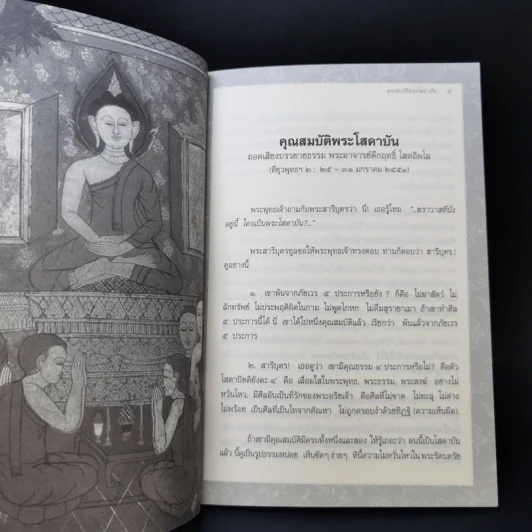 คุณสมบัติพระโสดาบัน ๙
คุณสมบัติพระโสดาบัน
ถอดเสียงบรรยายธรรม พระอาจารย์คึกฤทธิ์ โสตฺถิผโล
(ที่ยุวพุทธฯ ๒ : ๒๕ – ๓๑ มกราคม ๒๕๕๑)
พระพุทธเจ้าถามกับพระสารีบุตรว่า นี่! เธอรู้ไหม "..ฆราวาสที่นั่ง
อยู่นี้ ใครเป็นพระโสดาบัน?..."
พระสารีบุตรทูลขอให้พระพุทธเจ้าทรงตอบ ท่านก็ตอบว่า สารีบุตร!
ดูอย่างนี้
๑. เขาพ้นจากภัยเวร ๕ ประการหรือยัง ? ก็คือ ไม่ฆ่าสัตว์ ไม่
ลักทรัพย์ ไม่ประพฤติผิดในกาม ไม่พูดโกหก ไม่ดื่มสุรายาเมา ถ้าเขาทำศีล
๕ ประการนี้ได้ นี่ เขาได้ไปหนึ่งคุณสมบัติแล้ว เรียกว่า พ้นแล้วจากภัยเวร
๕ ประการ
๒. สารีบุตร! เธอดูว่า เขามีคุณธรรม ๔ ประการหรือไม่? คือตัว
โสตาปัตติยังคะ ๔ คือ เลื่อมใสในพระพุทธ, พระธรรม, พระสงฆ์ อย่างไม่
หวั่นไหว, มีศีลอันเป็นที่รักของพระอริยเจ้า คือศีลที่ไม่ขาด ไม่ทะลุ ไม่ด่าง
ไม่พร้อย เป็นศีลที่เป็นไทจากตัณหา ไม่ถูกครอบงำด้วยทิฏฐิ (ความเห็นผิด)
ถ้าเขามีคุณสมบัติมีครบทั้งหนึ่งและสอง ให้รู้เถอะว่า คนนี้เป็นโสดาบัน
แล้ว นี้ดูเป็นรูปธรรมหน่อย เห็นชัดๆ ง่ายๆ ทีนี้ความไม่หวั่นไหวใน พระรัตนตรัย